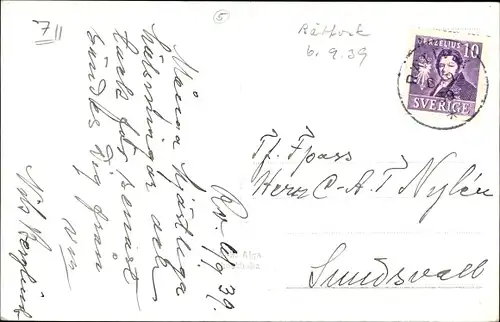 7
5
Rättvik
6.9.39
BERZELIUS 10
SVERIGE
Rv. 6/9 39.
Många hjärtliga
hälsningar och
tack för senast
sändes Dig från
vän
Nils Berglind
Tf. Fpass
Herr C-A. T Nylén
Sundsvall